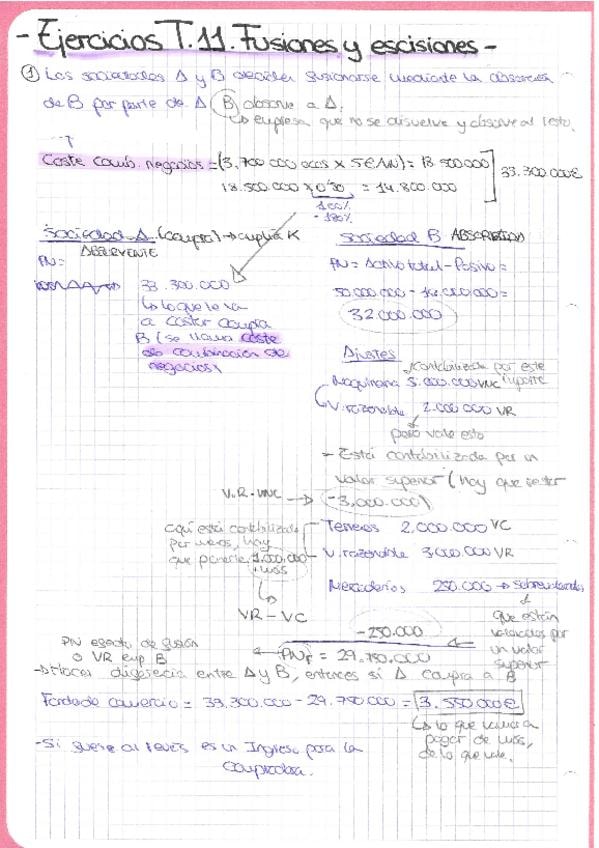 - Ejercicios T.11. Fusiones y escisiones -
① Las sociedades A y B deciden fusionarse mediante la absorción
de B por parte de A (B) absorve a A.
↳ empresa que no se disuelve y absorve al resto.
Coste comb. negocios = (3.700.000 accs x 5€AN) = 18.500.000
18.500.000 x 0'80 = 14.800.000
33.300.000€
100%
- 180%
Sociedad A (compra) → amplia K
ABSORVENTE
PN =
33.300.000
↳ lo que le va
a costar compra
B (se llama coste
de combinación de
negocios)
Sociedad B ABSORBIDA
PN = Activo total - Pasivo =
50.000.000 - 18.000.000 =
32.000.000
Ajustes
contabilizada por este
importe
Maquinaria 5.000.000 VNC
V. razonable 2.000.000 VR
pero vale esto
- Está contabilizada por un
valor superior (hay que restar
V.R - VNC → (-3.000.000)
Terrenos 2.000.000 VC
V. razonable 3.000.000 VR
aquí está contabilizado
por menos, hay
que ponerle 1.000.000
+ más
VR - VC
Mercaderías 250.000 → sobrevaloradas
que están
valoradas por
un valor
superior
-250.000
PN = 29.750.000
PN efecto de fusión
o VR emp B
→ Hacer diferencia entre A y B, entonces si A compra a B
Fondo de comercio = 33.300.000 - 29.750.000 = 3.550.000€
↳ lo que vamos a
pagar de más,
de lo que vale.
- Si fuese al revés es un Ingreso para la
compradora.